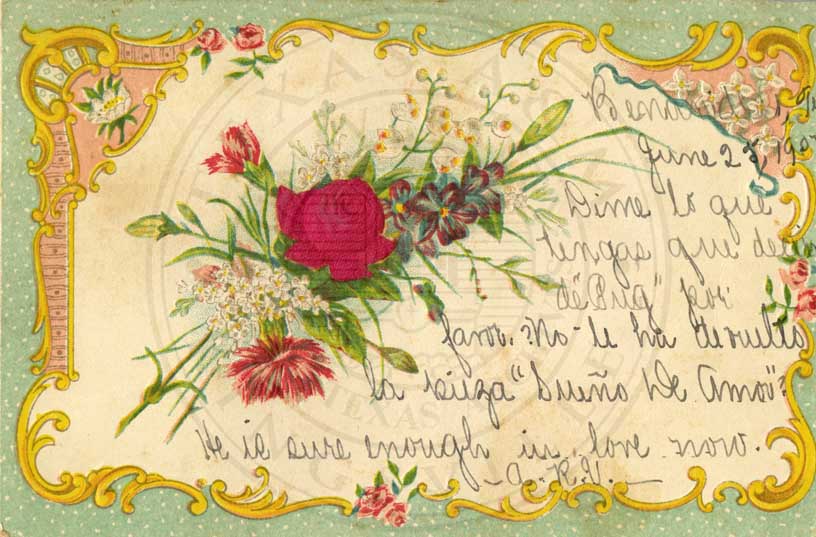 Benavides,
June 23, 190
Dime lo que
tengas que decir
de "Bug" por
favor. ?No te ha devuelto
la pieza "Sueño De Amor"?
He is sure enough in love now.
TEXAS